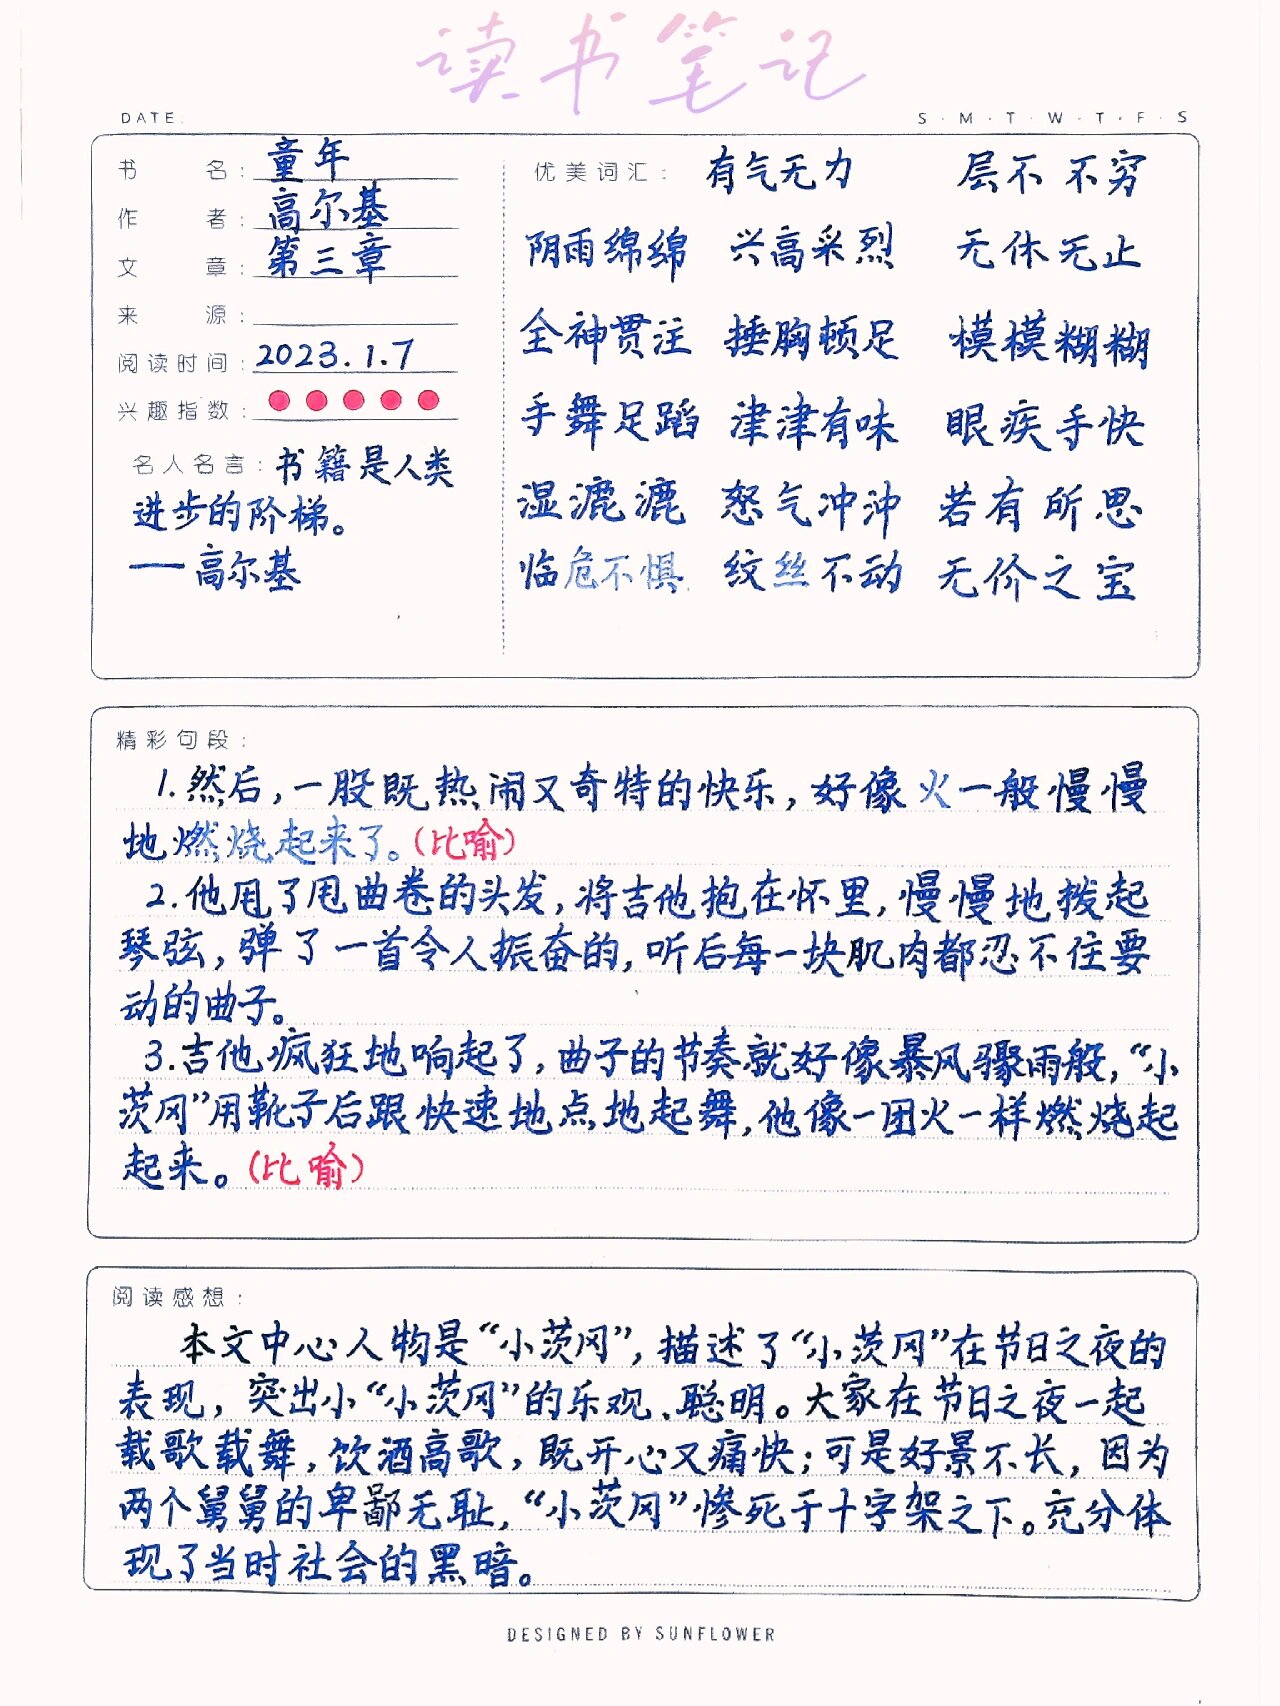 读书笔记
DATE: S·M·T·W·T·F·S
书名：童年
作者：高尔基
文章：第三章
来源：
阅读时间：2023.1.7
兴趣指数：
名人名言：书籍是人类
进步的阶梯。
——高尔基
优美词汇： 有气无力 层不不穷
阴雨绵绵 兴高采烈 无休无止
全神贯注 捶胸顿足 模模糊糊
手舞足蹈 津津有味 眼疾手快
湿漉漉 怒气冲冲 若有所思
临危不惧 纹丝不动 无价之宝
精彩句段：
1.然后，一股既热闹又奇特的快乐，好像火一般慢慢
地燃烧起来了。（比喻）
2.他甩了甩曲卷的头发，将吉他抱在怀里，慢慢地拨起
琴弦，弹了一首令人振奋的，听后每一块肌肉都忍不住要
动的曲子。
3.吉他疯狂地响起了，曲子的节奏就好像暴风骤雨般，“小
茨冈”用靴子后跟快速地点地起舞，他像一团火一样燃烧起
起来。（比喻）
阅读感想：
本文中心人物是“小茨冈”，描述了“小茨冈”在节日之夜的
表现，突出小“小茨冈”的乐观、聪明。大家在节日之夜一起
载歌载舞，饮酒高歌，既开心又痛快；可是好景不长，因为
两个舅舅的卑鄙无耻，“小茨冈”惨死于十字架之下。充分体
现了当时社会的黑暗。
DESIGNED BY SUNFLOWER